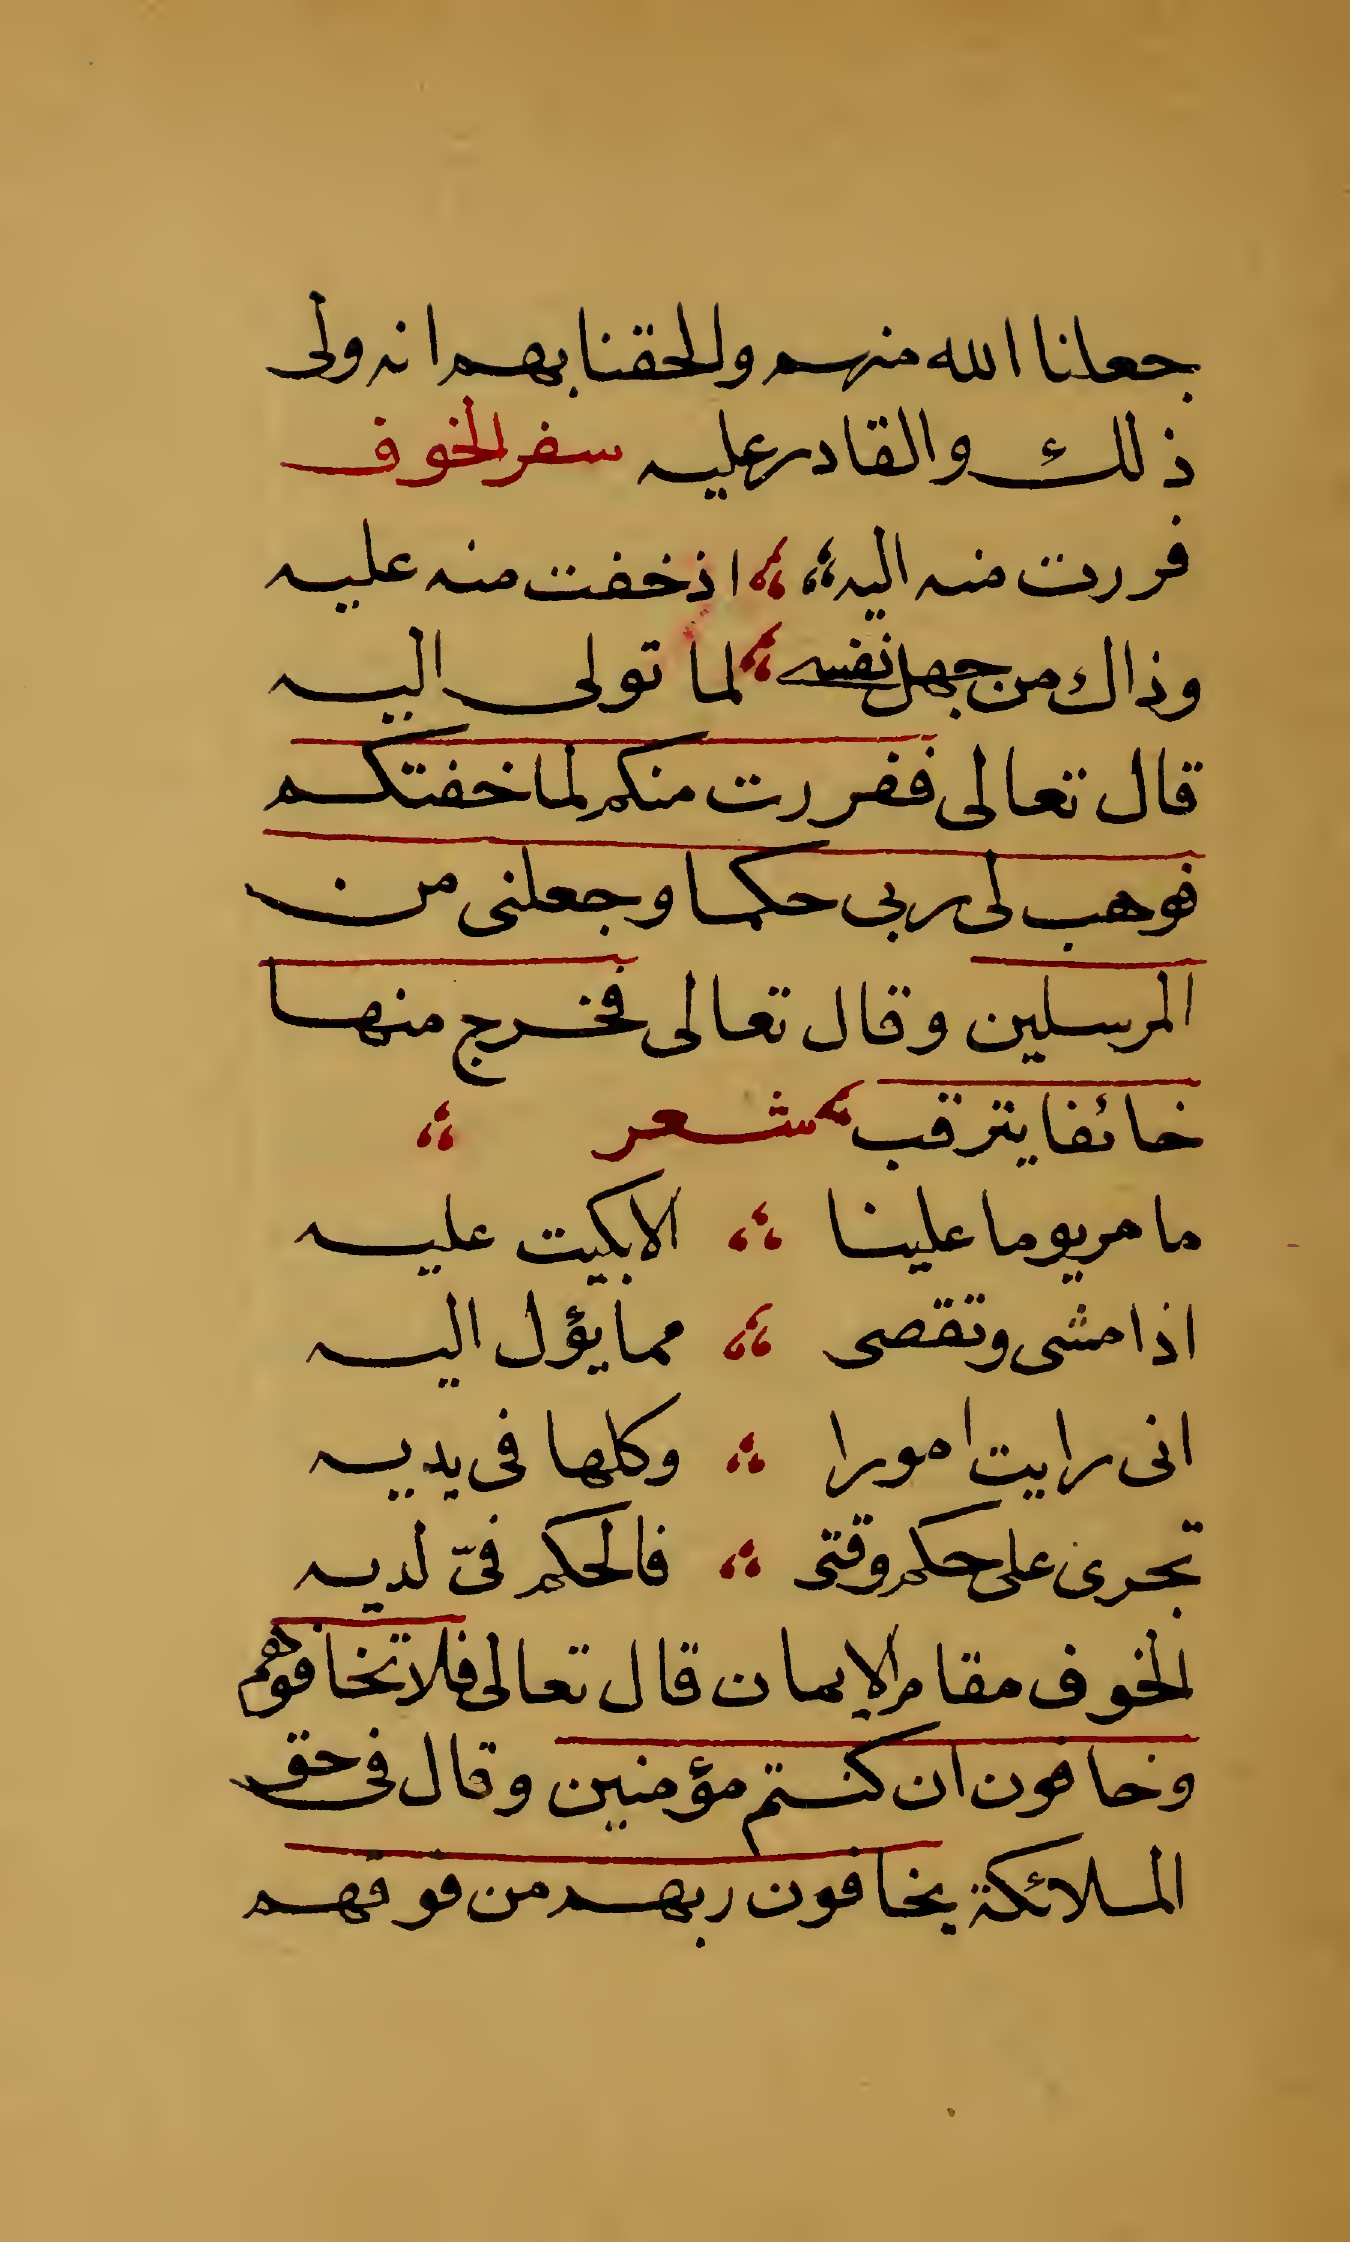 جعلنا الله منهم والحقنا بهم انه ولى
ذلك والقادر عليه سفر الخوف
فررت منه اليه اذ خفت منه عليه
وذاك من جهل نفسى لما تولى اليه
قال تعالى ففررت منكم لما خفتكم
فوهب لى ربى حكما وجعلنى من
المرسلين وقال تعالى فخرج منها
خائفا يترقب شعر
ما مر يوما علينا الا بكيت عليه
اذا مشى وتقضى مما يؤل اليه
انى رايت امورا وكلها فى يديه
تجرى على حكم وقتى فالحكم فىّ لديه
الخوف مقام الايمان قال تعالى فلا تخافوهم
وخافون ان كنتم مؤمنين وقال فى حق
الملائكة يخافون ربهم من فوقهم